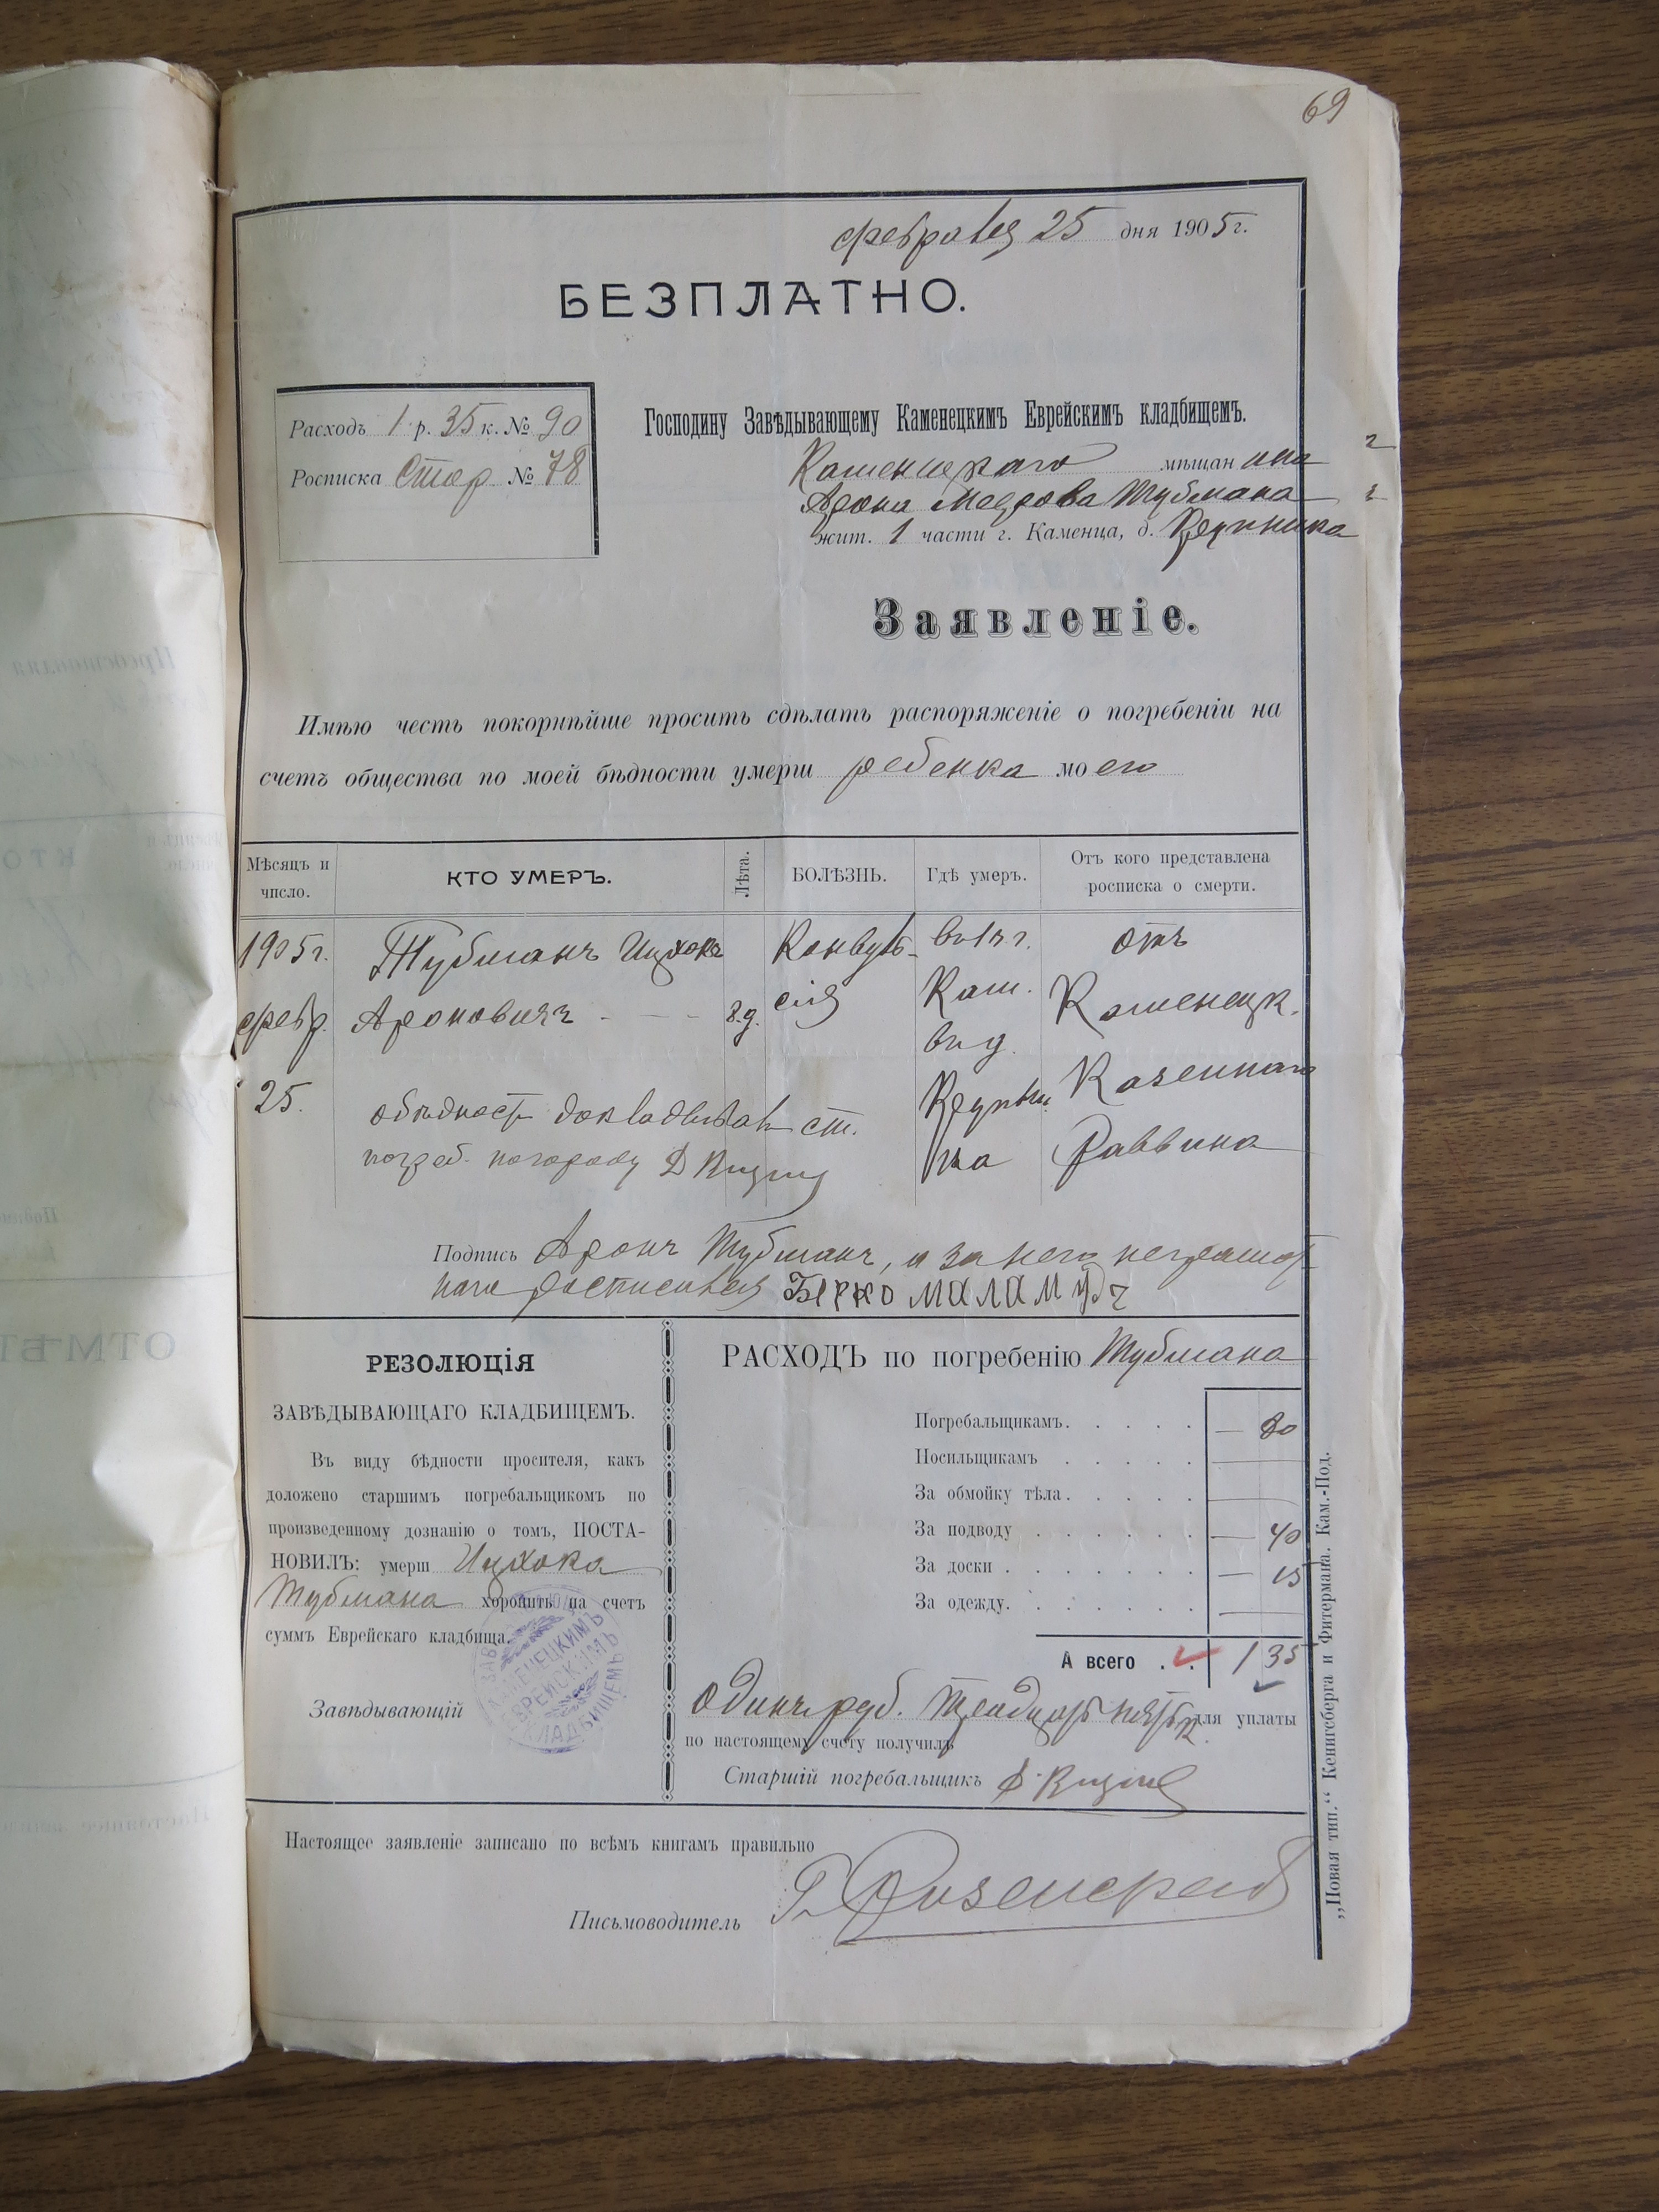 69
февраля 25 дня 1905 г.
БЕЗПЛАТНО.
Расходъ 1 р. 35 к. № 90
Росписка стор № 78
Господину Завѣдывающему Каменецкимъ Еврейскимъ кладбищемъ.
Каменецкаго мѣщанина
Арона Тубмана
жит. 1 части г. Каменца, д.
Заявленіе.
Имѣю честь покорнѣйше просить сдѣлать распоряженіе о погребеніи на
счетъ общества по моей бѣдности умерш ребенка моего
Мѣсяцъ и число.
КТО УМЕРЪ.
Лѣта.
БОЛѢЗНЬ.
Гдѣ умеръ.
Отъ кого представлена росписка о смерти.
1905 г. Тубманъ Ицхокъ Конвуль- въ 1 ч г. отъ
февр. Ароновичъ - - - 8 д. сія Кам. Каменецк.
въ д.
25. Казеннаго
о бѣдности докладывалъ ст. Раввина
погреб.
Подпись Аронъ Тубманъ, а за него неграмот
наго росписался БЕРКО МАЛАМУДЪ
РЕЗОЛЮЦІЯ
ЗАВѢДЫВАЮЩАГО КЛАДБИЩЕМЪ.
Въ виду бѣдности просителя, какъ
доложено старшимъ погребальщикомъ по
произведенному дознанію о томъ, ПОСТА-
НОВИЛЪ: умерш Ицхока
Тубмана хоронить на счетъ
суммъ Еврейскаго кладбища.
Завѣдывающій
ЗАВ КАМЕНЕЦКИМЪ ЕВРЕЙСКИМЪ КЛАДБИЩЕМЪ
РАСХОДЪ по погребенію Тубмана
Погребальщикамъ. . . . . — 80
Носильщикамъ . . . . . —
За обмойку тѣла. . . . . —
За подводу . . . . . . — 40
За доски . . . . . . . — 15
За одежду. . . . . . . —
А всего . . 1 35
Одинъ руб. тридцать пять к. для уплаты
по настоящему счету получилъ
Старшій погребальщикъ
Настоящее заявленіе записано по всѣмъ книгамъ правильно
Письмоводитель
„Новая тип.“ Кенигсберга и Фитермана. Кам.-Под.